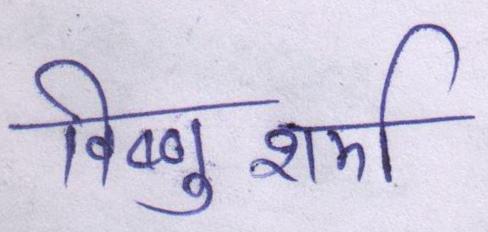 विष्णु शर्मा